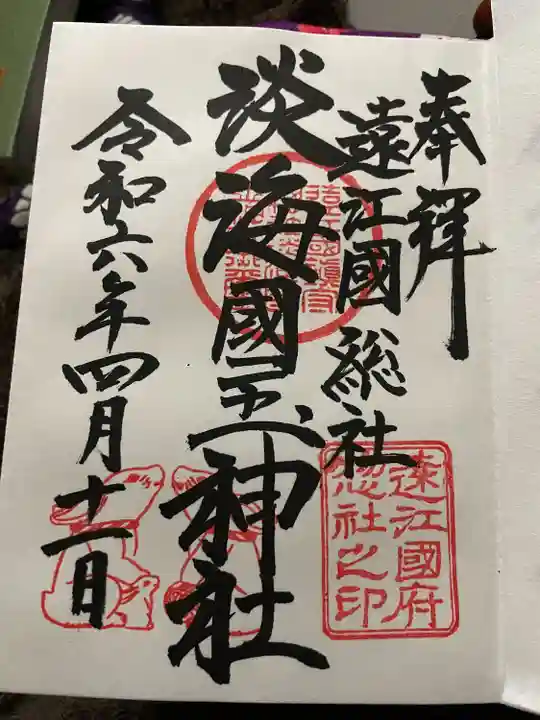 奉拝
遠江國総社
淡海國玉神社
令和六年四月十一日
遠江國府
惣社之印